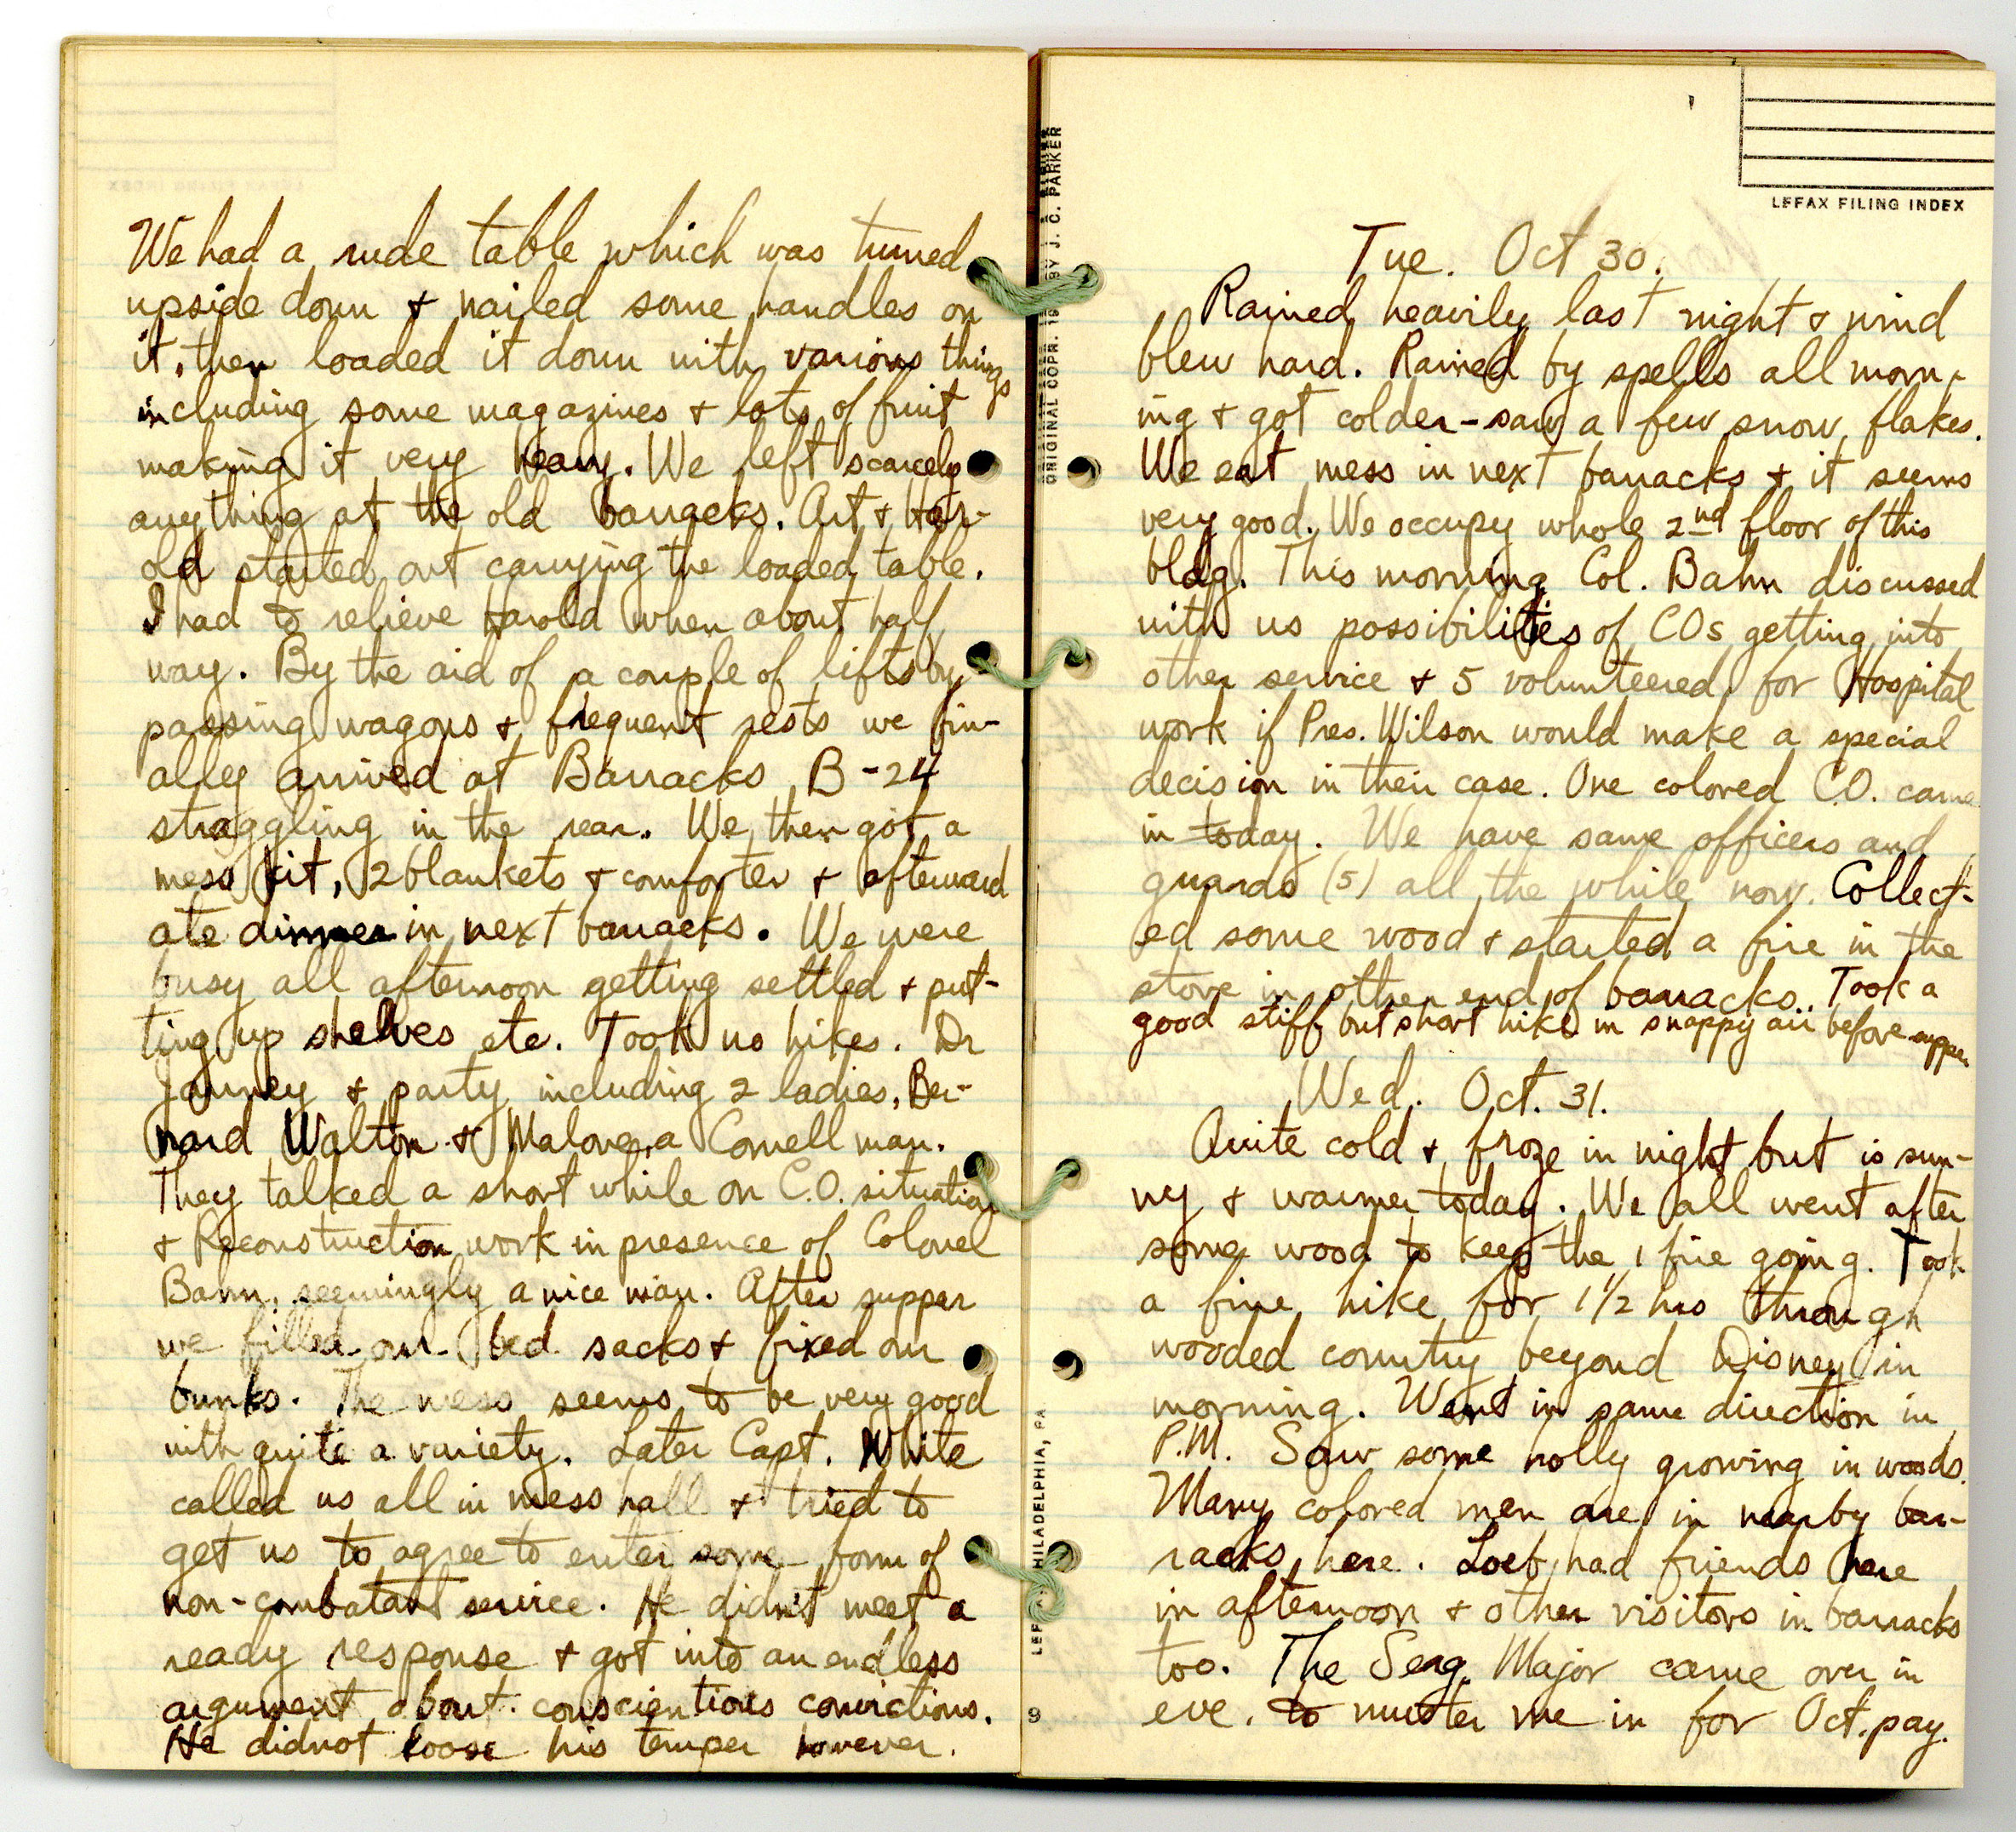 We had a rude table which was turned
upside down & nailed some handles on
it, then loaded it down with various things
including some magazines & lots of fruit
making it very heavy. We left scarcely
anything at the old barracks. Art & Har-
old started out carrying the loaded table.
I had to relieve Harold when about half
way. By the aid of a couple of lifts by
passing wagons & frequent rests we fin-
ally arrived at Barracks B-24
straggling in the rear. We then got a
mess kit, 2 blankets & comforter & afterward
ate dinner in next barracks. We were
busy all afternoon getting settled & put-
ting up shelves etc. Took no hikes. Dr
Janney & party including 2 ladies, Ber-
nard Walton & Malone, a Cornell man.
They talked a short while on C.O. situation
& Reconstruction work in presence of Colonel
Bahn, seemingly a nice man. After supper
we filled our bed sacks & fixed our
bunks. The mess seems to be very good
with quite a variety. Later Capt. White
called us all in mess hall & tried to
get us to agree to enter some form of
non-combatant service. He didn't meet a
ready response & got into an endless
argument about conscientious convictions.
He did not loose his temper however.
ORIGINAL COPR. 19 BY J. C. PARKER
PHILADELPHIA, PA
9
LEFAX FILING INDEX
Tue. Oct 30.
Rained heavily last night & wind
blew hard. Rained by spells all morn-
ing & got colder - saw a few snow flakes.
We eat mess in next barracks & it seems
very good. We occupy whole 2nd floor of this
bldg. This morning Col. Bahn discussed
with us possibilities of COs getting into
other service & 5 volunteered for Hospital
work if Pres. Wilson would make a special
decision in their case. One colored C.O. came
in today. We have same officers and
guards (5) all the while now. Collect-
ed some wood & started a fire in the
stove in other end of barracks. Took a
good stiff but short hike in snappy air before supper
Wed. Oct. 31.
Quite cold & froze in night but is sun-
ny & warmer today. We all went after
some wood to keep the 1 fire going. Took
a fine hike for 1 1/2 hrs through
wooded country beyond Disney in
morning. Went in same direction in
P.M. Saw some holly growing in woods.
Many colored men are in nearby bar-
racks here. Loeb had friends here
in afternoon & other visitors in barracks
too. The Serg. Major came over in
eve. to muster me in for Oct. pay.